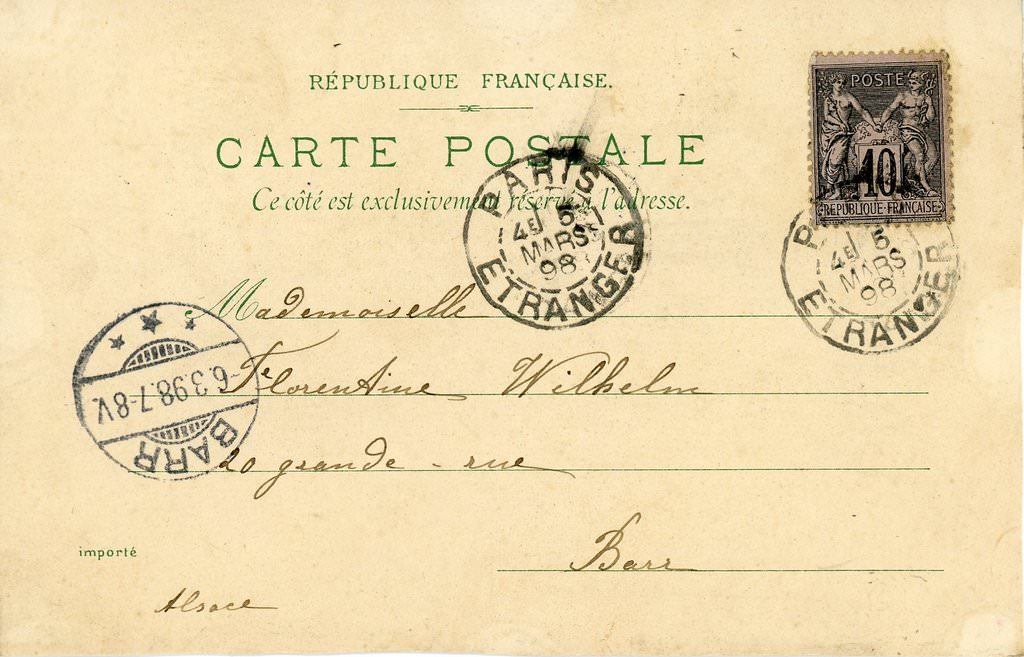 RÉPUBLIQUE FRANÇAISE.
CARTE POSTALE
Ce côté est exclusivement réservé à l'adresse.
POSTE
10
REPUBLIQUE FRANCAISE
PARIS
4E 5
MARS
98
ETRANGER
P
4E 5
MARS
98
ETRANGER
Mademoiselle
Florentine Wilhelm
20 grande - rue
Barr
Alsace
-6.3.98.7-8V.
BARR
importé